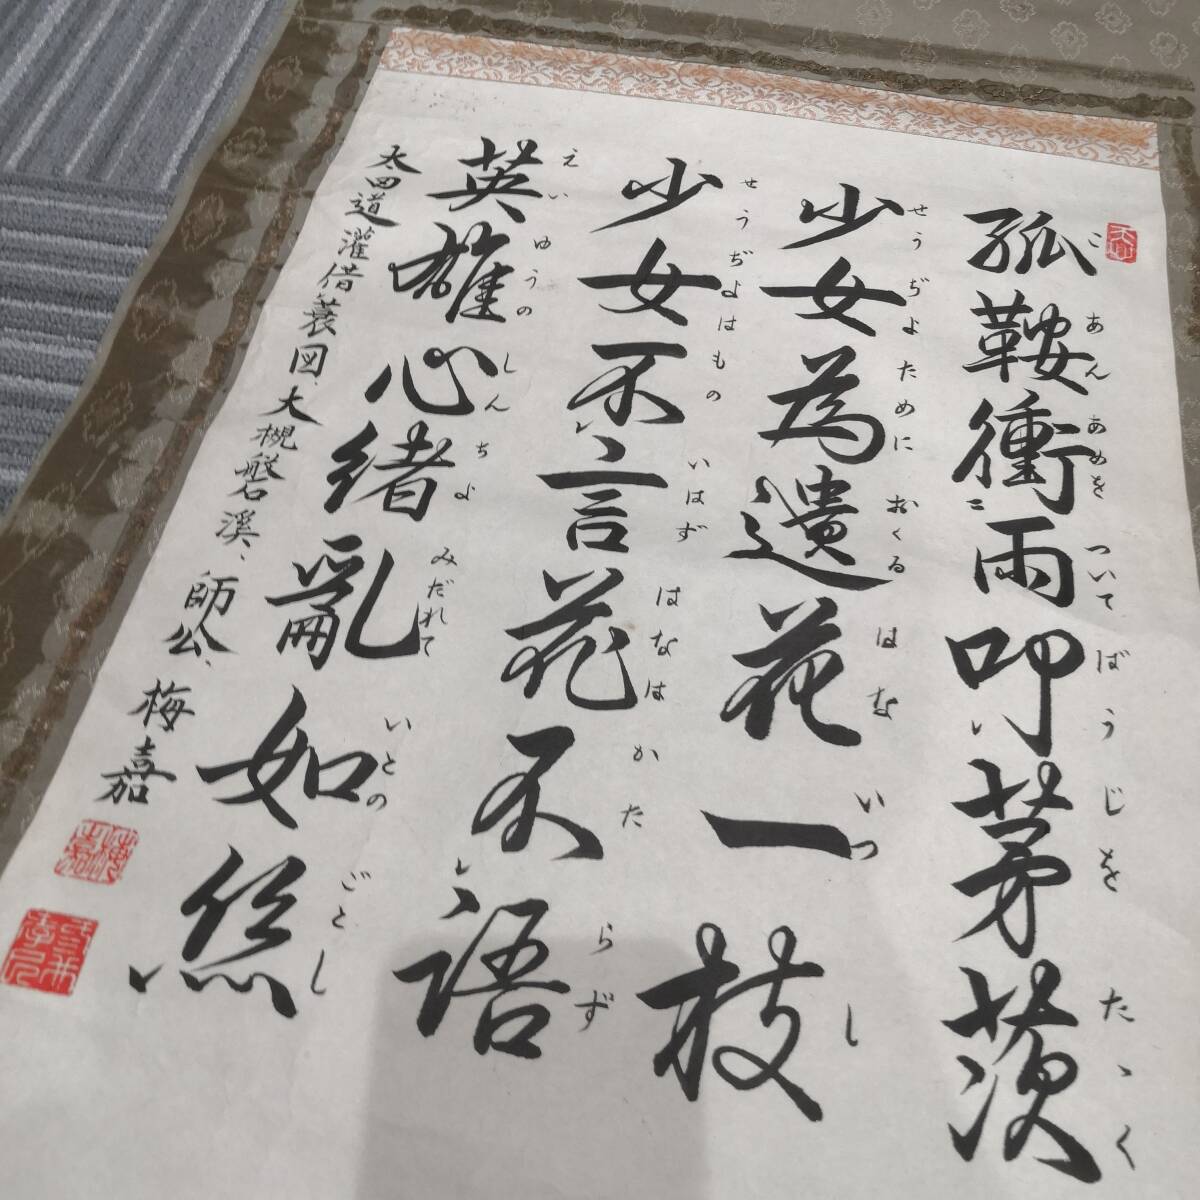 孤鞍衝雨叩茅茨
こあんあめをついてばうじをたゝく
少女為遺花一枝
せうぢよためにおくるはないつし
少女不言花不語
せうぢよはものいはずはなはかたらず
英雄心緒亂如絲
えいゆうのしんちよみだれていとのごとし
太田道灌借蓑図、大槻磐溪、師公、梅嘉